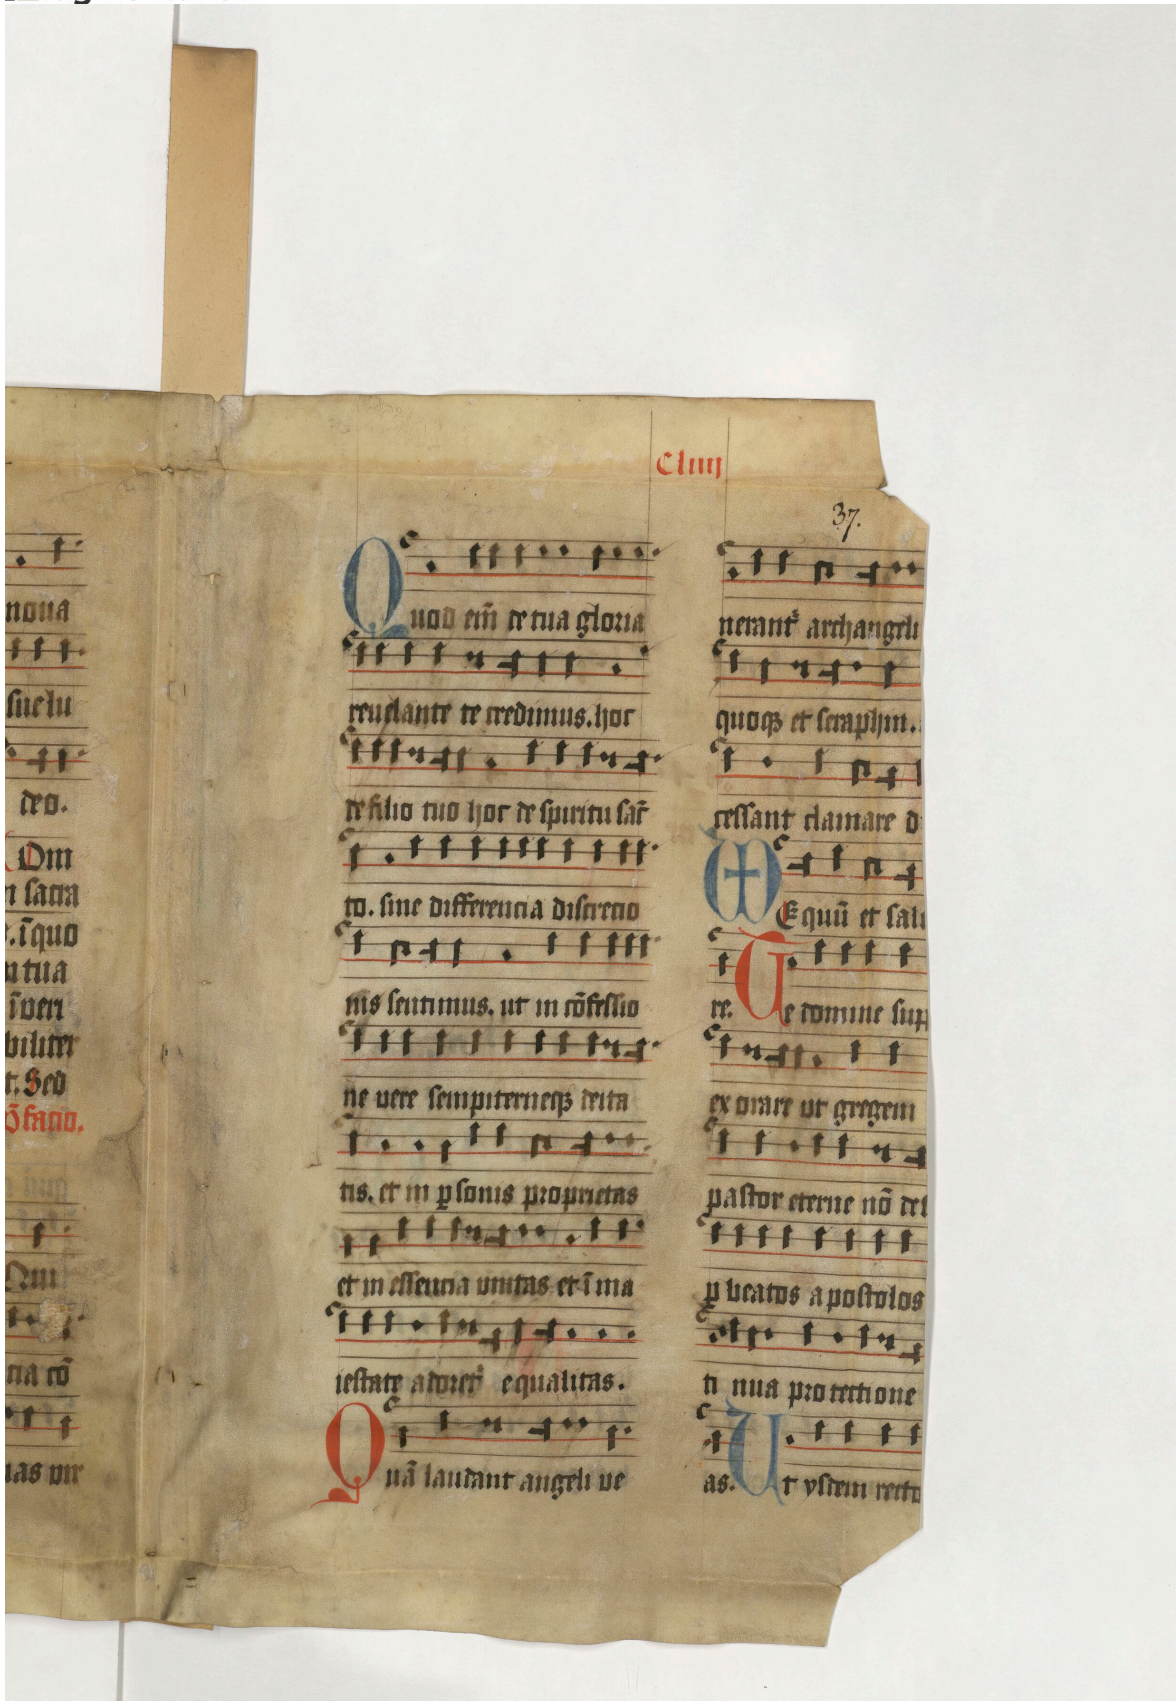 noua
suelu
deo.
Om
n sacra
. īquo
n tua
īveri
biliter
t. Sed
Qui
na cō
nas vir
Cliiij
37.
Quod em̄ de tua gloria
reuelante te credimus. hoc
de filio tuo hoc de spiritu san̄c
to. sine differencia discrecio
nis sentimus. ut in cōfessio
ne uere sempiterneqꝫ deita
tis. et in ꝑsonis proprietas
et in essencia unitas et ī ma
iestate adoret᷑ equalitas.
Quā laudant angeli ve
nerant᷑ archangeli
quoqꝫ et seraphin.
cessant clamare d
Equū et salu
re. Te domine supp
exorare ut gregem
pastor eterne nō des
ꝑ beatos apostolos
ti nua protectione
as. Ut ysdem recto